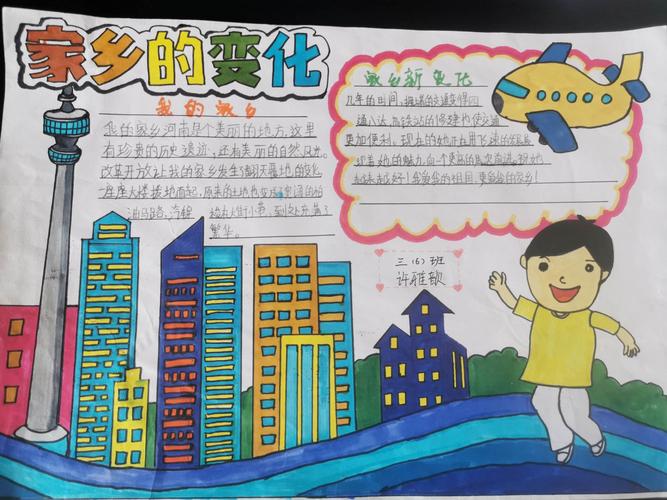 家乡的变化
我的家乡
我的家乡河南是个美丽的地方，这里
有珍贵的历史遗迹，还有美丽的自然风光。
改革开放让我的家乡发生了翻天覆地的变化
一座座大楼拔地而起，原来的土地也变成
油马路，汽车 大街小巷，到处充满了
繁华。
家乡新变化
几年的时间，拥堵的交通变得四
通八达，高铁站的修建也使交通
更加便利。现在的她正在用飞速的发展
的魅力，向一个更高的
越来越好！我爱我的祖国，更爱我的家乡！
三（6）班
许雅歆